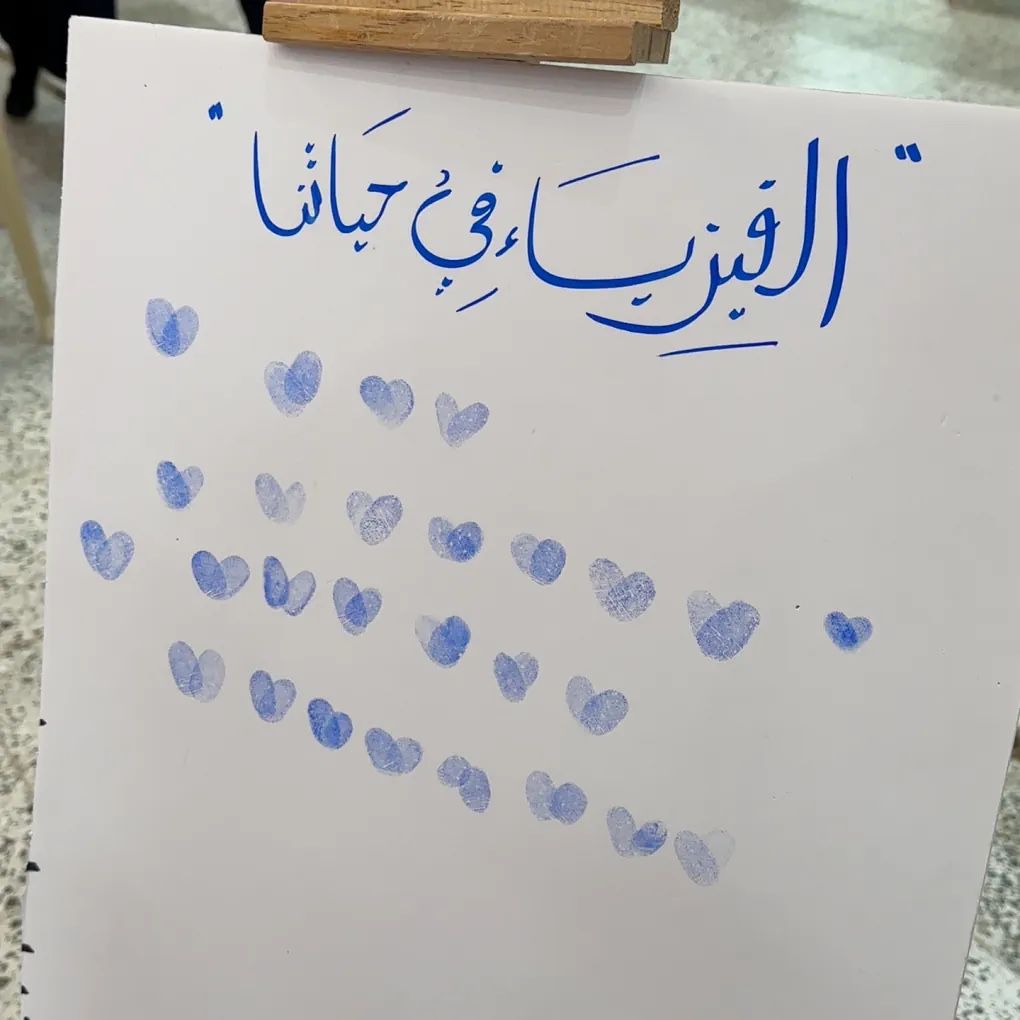 "الفيزياء في حياتنا"